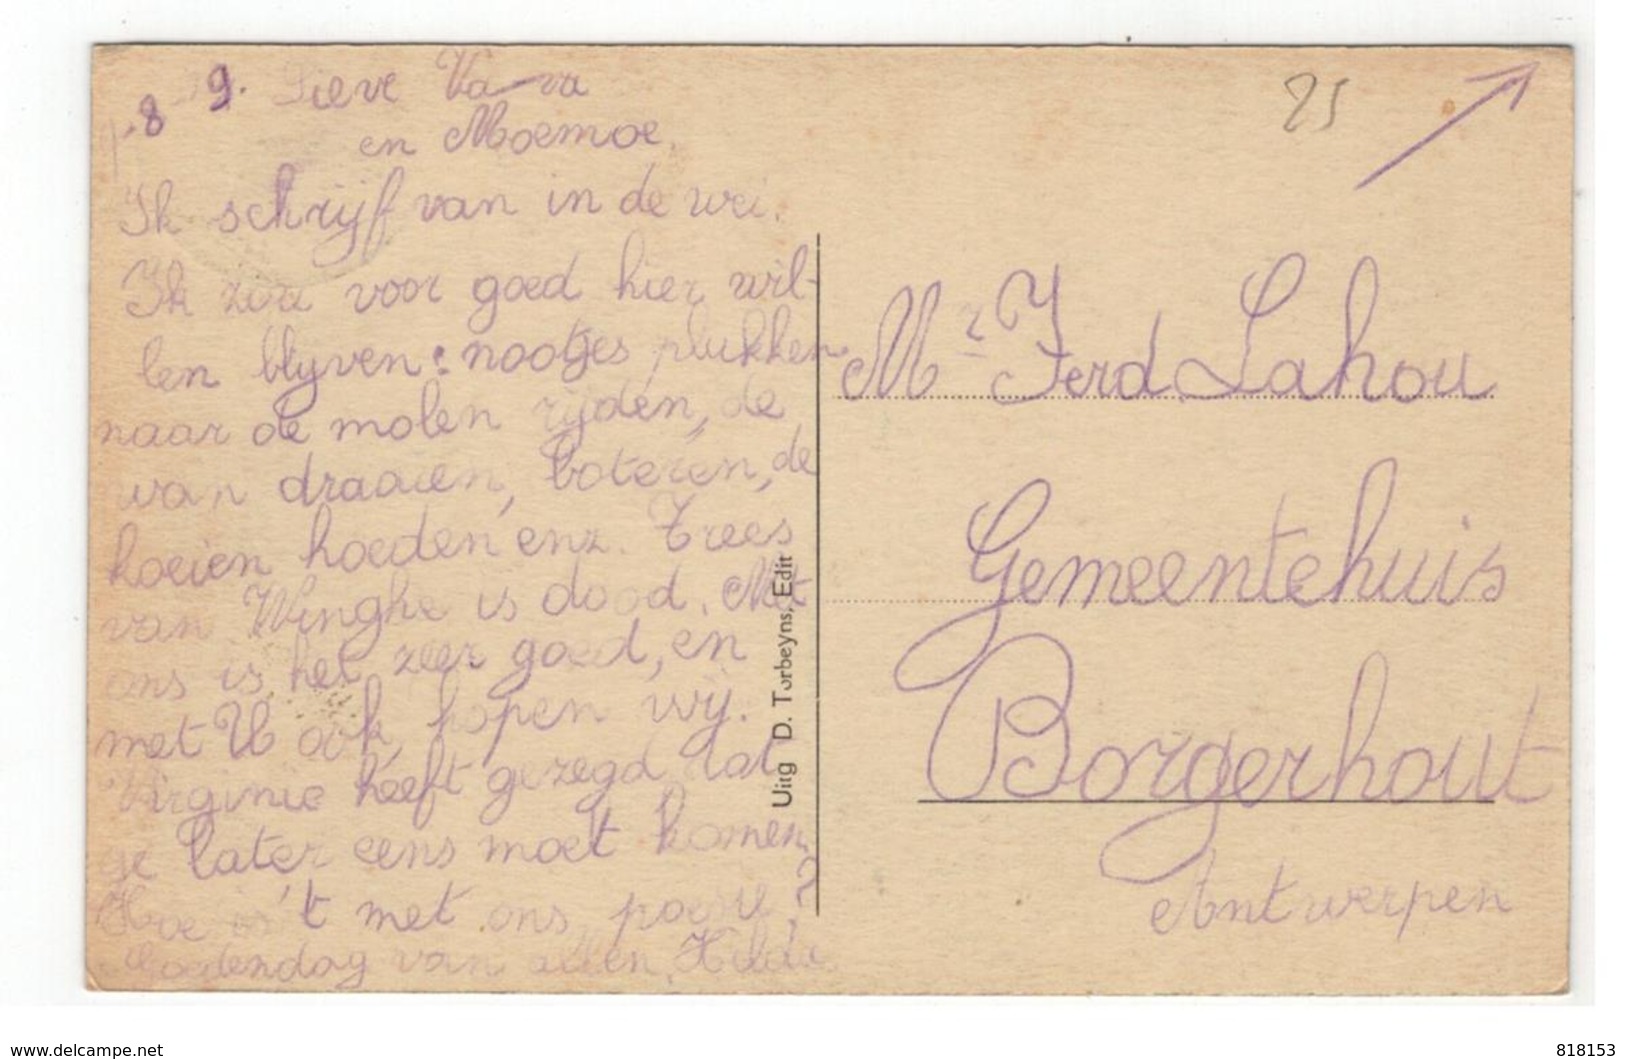 -8- 9. Lieve Va-va
en Moemoe.
Ik schrijf van in de wei.
Ik zou voor goed hier wil-
len blijven: nootjes plukken
naar de molen rijden, de
wan draaien, boteren, de
koeien hoeden enz. Trees
van Winghe is dood. Met
ons is het zeer goed, en
met U ook, hopen wij.
Virginie heeft gezegd dat
ge later eens moet komen.
Hoe is 't met ons poesy?
Goedendag van allen, Hilda
Uitg D. Torbeyns, Edit
25
Mr Ferd Lahou
Gemeentehuis
Borgerhout
Antwerpen
www.delcampe.net
818153